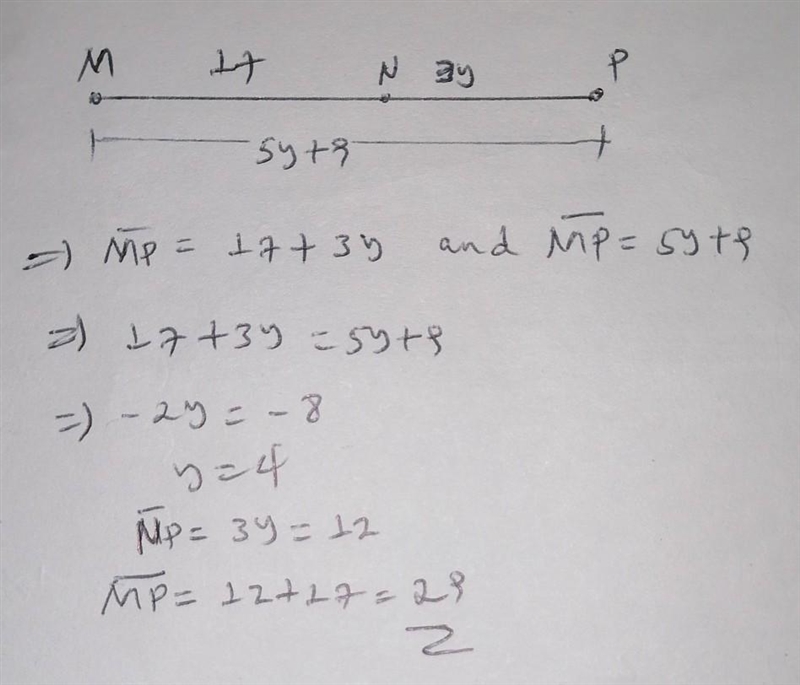 M 17 N 3y P
5y+9
=) MP = 17+3y and MP = 5y+9
=) 17+3y = 5y+9
=) -2y = -8
y = 4
NP = 3y = 12
MP = 12+17 = 29